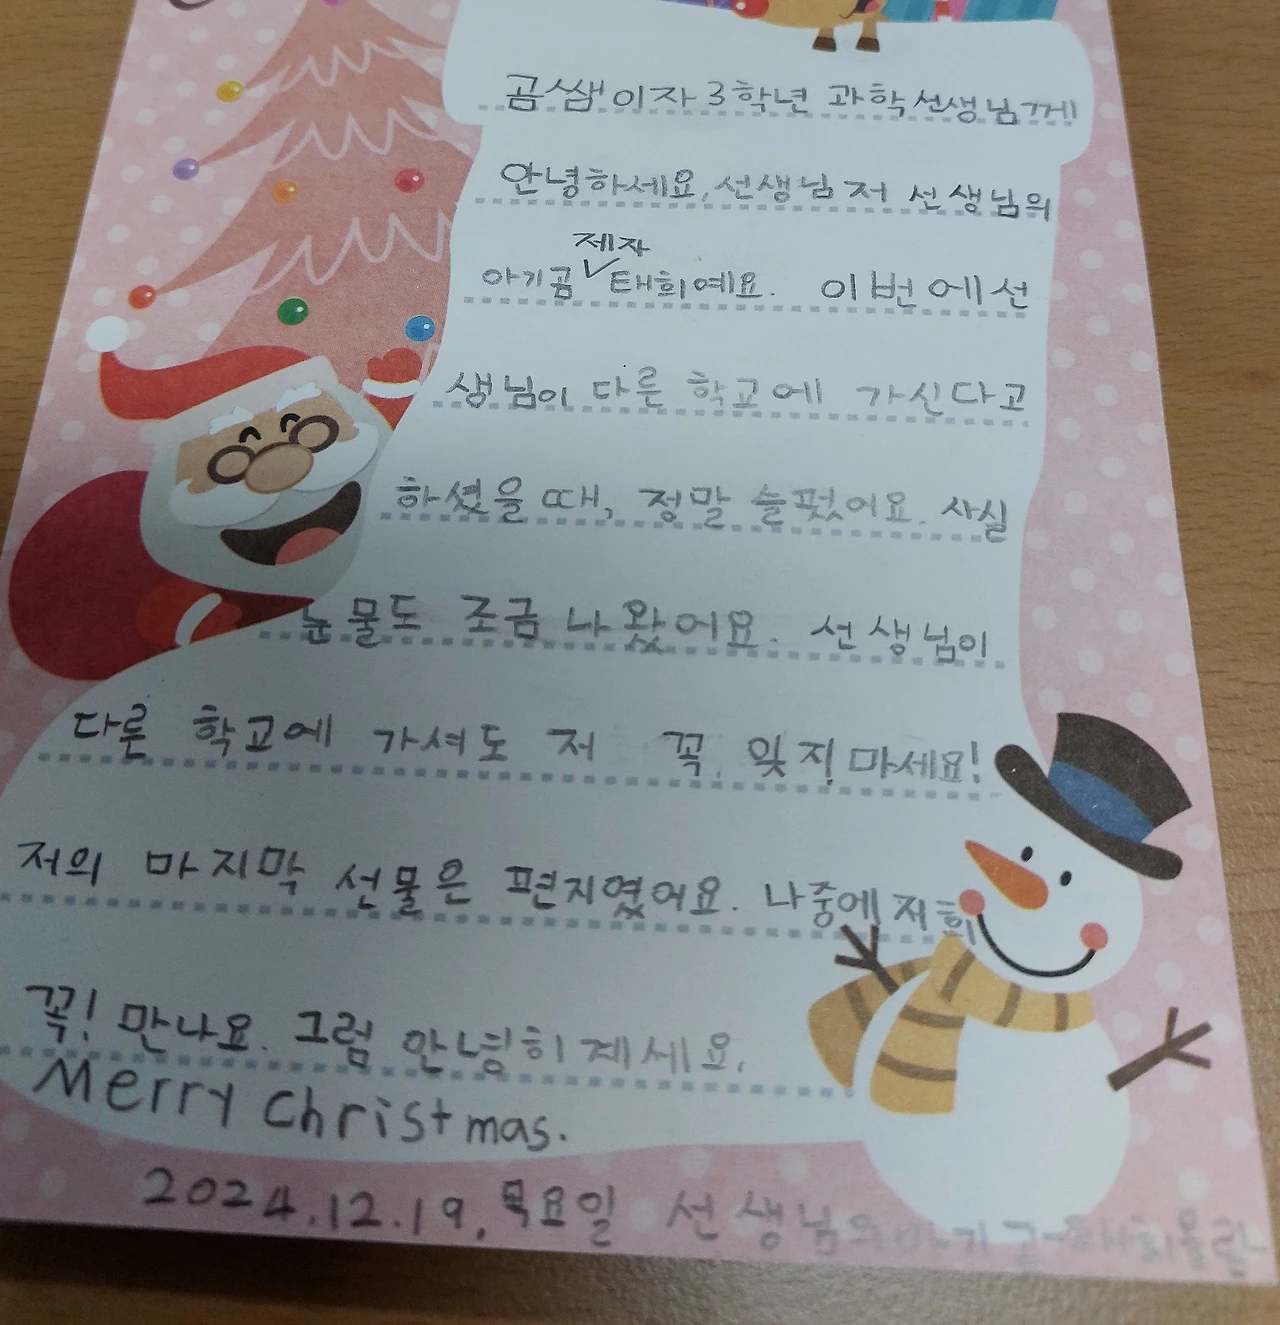 곰쌤이자 3학년 과학선생님께
안녕하세요, 선생님 저 선생님의
제자
아기곰 태희예요. 이번에 선
생님이 다른 학교에 가신다고
하셨을 때, 정말 슬펐어요. 사실
눈물도 조금 나왔어요. 선생님이
다른 학교에 가셔도 저 꼭 잊지 마세요!
저의 마지막 선물은 편지였어요. 나중에 저희
꼭! 만나요. 그럼 안녕히 계세요.
Merry Christmas.
2024.12.19. 목요일 선생님의 아기곰 태희올림